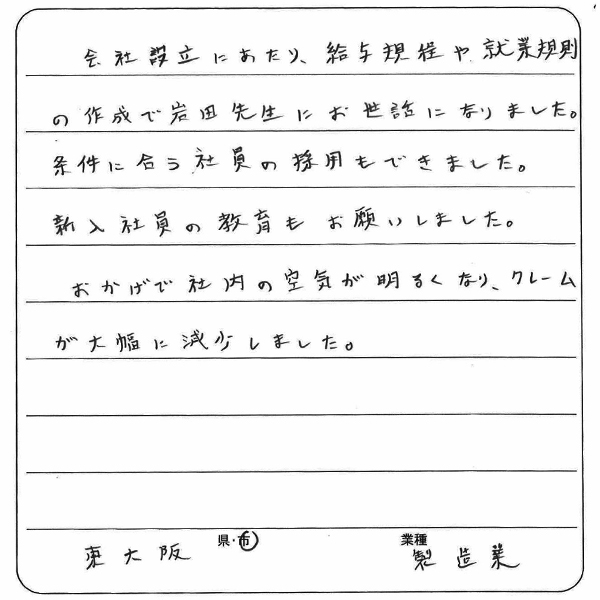 会社設立にあたり、給与規程や就業規則
の作成で岩田先生にお世話になりました。
条件に合う社員の採用もできました。
新入社員の教育もお願いしました。
おかげで社内の空気が明るくなり、クレーム
が大幅に減少しました。
東大阪 県・市 業種 製造業